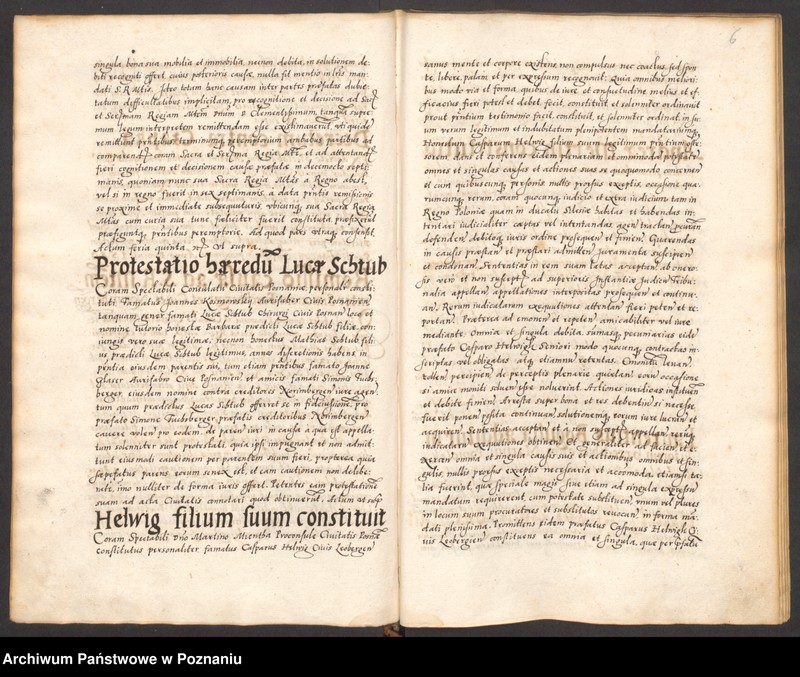 singula, bona sua mobilia et immobilia, necnon debita, in solutionem de-
biti recogniti offert, cuius posterioris causæ, nulla fit mentio in
dati S. R. Ideo totam hanc causam inter partes præfatas dubie-
tatum difficultatibus implicitam, pro recognitione et decisione ad
et Regiam
mum legum interpretem remittendam esse existimaverunt, uti quidem
remittunt
comparendi coram Sacra et Regia et ad attentandum
fieri cognitionem et decisionem causæ præfatæ in decem octo septi-
manis, quoniam nunc sua Sacra Regia a Regno abest,
vel si in regno fuerit in sex septimanis, a data remissionis
se proxime et immediate subsequuturis, ubicunq sua Sacra Regia
cum curia sua tunc feliciter fuerit constituta præfixerunt
peremptorie. Ad quod pars utraq consensit
Actum feria quinta ut supra.
Protestatio hæredũ Lucæ Schtub
Coram Spectabili Consulatu Civitatis Posnaniæ personaliter consti-
tuti Famatus Joannes Kosmowski Aurifaber Civis
tanquam gener famati Lucæ Schtub Chirurgi Civis Posnan loco et
nomine tutorio honestæ Barbaræ prædicti Lucæ Schtub filiæ, con-
iungis vero suæ legitimæ, necnon honestus Mathias Schtub fili-
us prædicti Lucæ Schtub legitimus, annos discretionis habens in
præntia eiusdem parentis sui, tum etiam præntibus famato Joanne
Glaser Aurifabro Cive et amicis famati Simonis Fuchs-
berger, eiusdem nomine contra creditores Norimbergen iure agen
tum quum prædictus Lucas Schtub offerret se in fideiussione, pro
præfato Simone Fuchsberger, præfatis creditoribus Norimbergen
cavere volens pro eodem, de paren iuri in causa a qua est appella-
tum solenniter sunt protestati, quia ipsi impugnant et non admit-
tunt eiusmodi cautionem per parentem suum fieri, propterea quia
sæpefatus parens eorum senex est, et eam cautionem non delibe-
rate, imo nulliter de forma iuris offert. Petentes eam protestationem
suam ad acta Civitatis connotari quod obtinuerunt. Actum ut supra
Helwig filium suum constituit
Coram Spectabili Dno Martino Mientha Proconsule Civitatis
constitutus personaliter famatus Casparus Helwig Civis Leobergen
6
sanus mente et corpore existens, non compulsus nec coactus, sed spon-
te, libere, palam et per expressum recognovit: Quia omnibus meliori-
bus modo via et forma, quibus de iure et consuetudine melius et ef-
ficacius fieri potest et debet, fecit, constituit et solenniter ordinavit
prout præntium testimonio facit, constituit, et solenniter ordinat, in su-
um verum legitimum et indubitatum plenipotentem mandatariumq
Honestum Casparum Helwig filium suum legitimum
sorem, dans et conferens eidem plenariam et omnimodam potestatem
omnes et singulas causas et actiones suas se quoquomodo concernen
et cum quibuscunq personis nullis prorsus exceptis, occasione qua-
rumcunq rerum, coram quocunq iudicio et extra iudicium tam in
Regno Poloniæ quam in ducatu Silesiæ habitas et habendas in-
tentari iudicialiter cæptas vel intentandas agen tractan
defenden debiteq iuris ordine prosequen et finien. Guarandas
in causis præstan et præstari admitten, Juramenta suscipien
et condonan. Sententias in rem suam latas acceptan, ab onero-
sis vero et non ad superioris Instantiæ Judicem Tribu-
nalia appellan appellationes interpositas prosequen et continu-
an, Rerum iudicatarum exequutiones attentan fieri peten et re-
portan. Præterea ad emonen et repeten amicabiliter vel iure
mediante. Omnia et singula debita, summasq pecuniarias eidem
præfato Casparo Helwigk Seniori modo quocunq contractas in-
scriptas vel obligatas etiamnu retentas. Emonitu levan,
tollen, percipien, de perceptis plenarie quietan, eorum occasione
si amice moniti solven esse noluerint. Actiones iuridicas instituen
et debite finien, Arresta super bona et res debentiu si necesse
fuerit ponen posita continuan, solutionemq eorum iure lucran et
acquiren, Sententias acceptan, et a non suscepti appellan, rerum
indicatarum exequutiones obtinen, et generaliter ad facien et e-
xercen omnia et singula causis suis et actionibus omnibus et sin-
gulis, nullis prorsus exceptis necessaria et accomoda, etiamsi ta-
lia fuerint, quæ speciale magis sive etiam ad singula expressum
mandatum requirerent, cum potestate substituen, unum vel plures
in locum suum procuratores et substitutos revocan, in forma man-
dati plenissima. Promittens eidem præfatus Casparus Helwigk Ci-
vis Leobergen constituens ea omnia et singula, quæ per
Archiwum Państwowe w Poznaniu